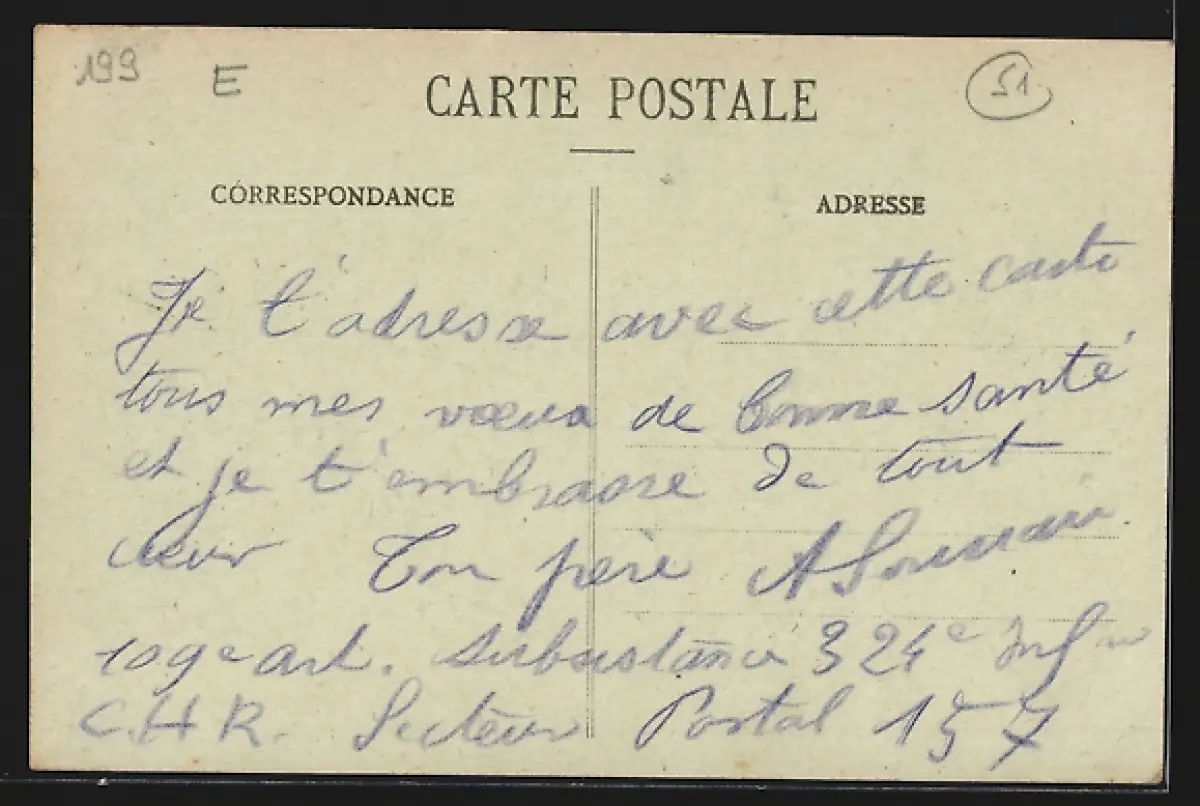 199 E
51
CARTE POSTALE
CORRESPONDANCE
ADRESSE
Je t'adresse avec cette carte
tous mes vœux de bonne santé
et je t'embrasse de tout
cœur Ton père A
109e art. subsistance 324e Inf
C.H.R. Secteur Postal 157